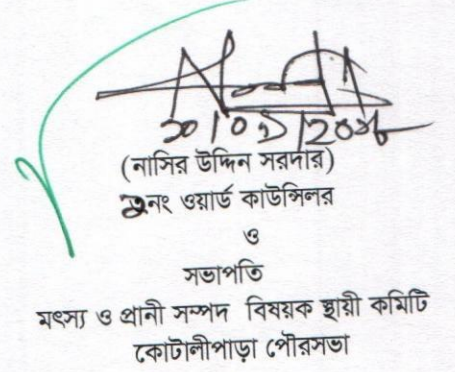 (নাসির উদ্দিন সরদার)
৩নং ওয়ার্ড কাউন্সিলর
ও
সভাপতি
মৎস্য ও প্রানী সম্পদ বিষয়ক স্থায়ী কমিটি
কোটালীপাড়া পৌরসভা